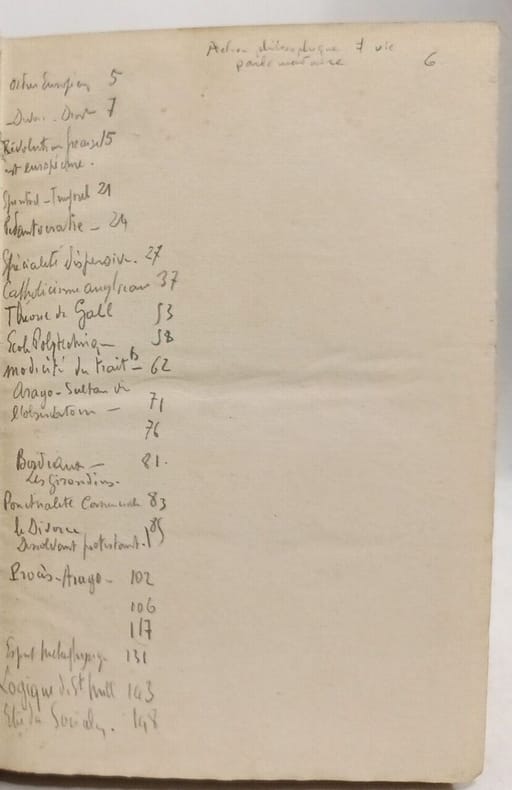 Action philosophique ≠ vie
parlementaire 6
5
Devoir - Droit 7
Révolution française 15
est européenne.
Spirituel-Temporel 21
Pédantocratie - 24
Spécialité dispersive. 27
Catholicisme anglican 37
Théorie de Gall 53
Ecole Polytechnique 58
modicité du trait 62
Arago-Sultan de
l'observatoire - 71
76
Bordeaux - 81.
Les Girondins.
Ponctualité Commerciale 83
le Divorce 89
Dissolvant protestant.
Procès-Arago- 102
106
117
Esprit métaphysique 131
Logique de St Mill 143
148